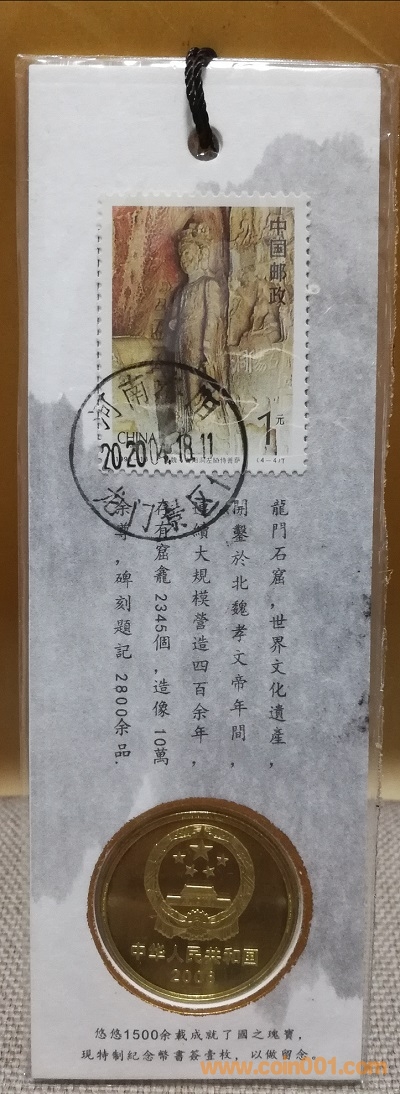 中国邮政
1元
CHINA
(4-4)T
河南
2020.04.18.11
龙门景区
龍門石窟，世界文化遺產，
開鑿於北魏孝文帝年間，
連續大規模營造四百余年，
存有窟龕2345個，造像10萬
余尊，碑刻題記2800余品.
中华人民共和国
2006
悠悠1500余載成就了國之瑰寶，
現特制紀念幣書簽壹枚，以做留念.
www.coin001.com